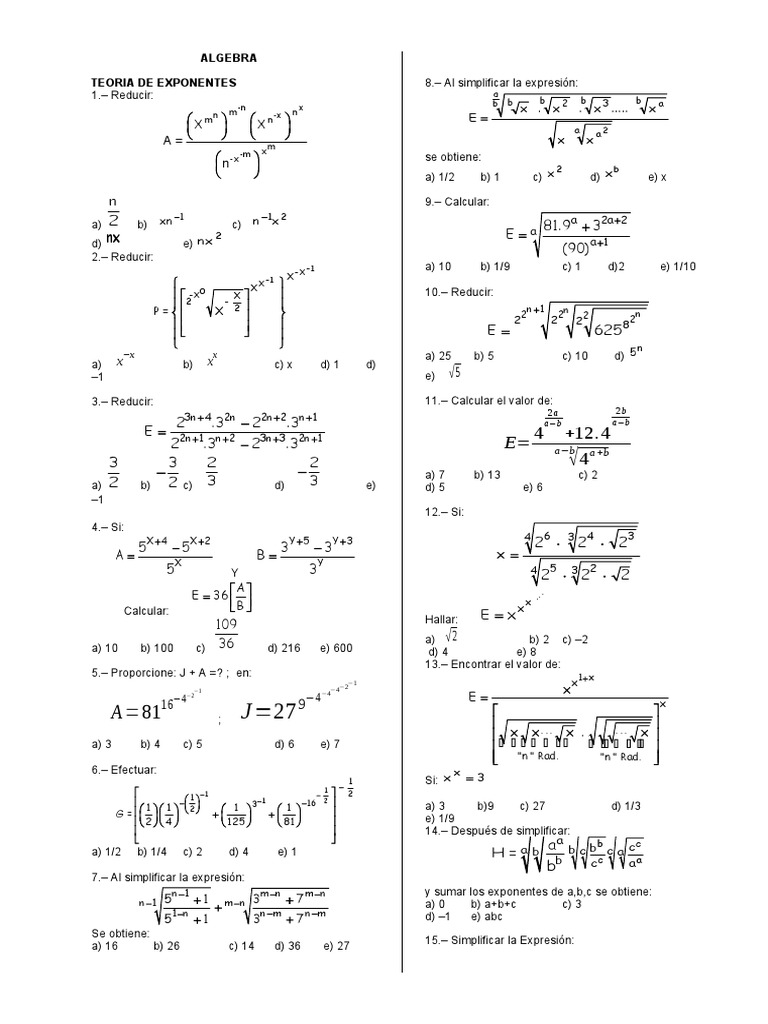 ALGEBRA
TEORIA DE EXPONENTES
1.– Reducir:
A = \frac{\left(x^{m^n}\right)^{m^{-n}} \left(x^{n^{-x}}\right)^{n^x}}{\left(n^{-x^{-m}}\right)^{x^m}}
a) \frac{n}{2} b) xn^{-1} c) n^{-1}x^2
d) nx e) nx^2
2.– Reducir:
P = \left\{\left[\sqrt[2^{-x^0}]{x^{-\frac{x}{2}}}\right]^{x^{x^{-1}}}\right\}^{x^{-x^{-1}}}
a) x^{-x} b) x^x c) x d) 1 d)
–1
3.– Reducir:
E = \frac{2^{3n+4}.3^{2n} - 2^{2n+2}.3^{n+1}}{2^{2n+1}.3^{n+2} - 2^{3n+3}.3^{2n+1}}
a) \frac{3}{2} b) -\frac{3}{2} c) \frac{2}{3} d) -\frac{2}{3} e)
–1
4.– Si:
A = \frac{5^{x+4} - 5^{x+2}}{5^x} B = \frac{3^{y+5} - 3^{y+3}}{3^y}
Calcular: E = 36\left[\frac{A}{B}\right]^Y
a) 10 b) 100 c) \frac{109}{36} d) 216 e) 600
5.– Proporcione: J + A =? ; en:
A = 81^{16^{-4^{-2^{-1}}}} ; J = 27^{9^{-4^{-4^{-4^{-2^{-1}}}}}}
a) 3 b) 4 c) 5 d) 6 e) 7
6.– Efectuar:
G = \left[\left(\frac{1}{2}\right)\left(\frac{1}{4}\right)^{-\left(\frac{1}{2}\right)^{-1}} + \left(\frac{1}{125}\right)^{3^{-1}} + \left(\frac{1}{81}\right)^{-16^{-\frac{1}{2}}}\right]^{-\frac{1}{2}}
a) 1/2 b) 1/4 c) 2 d) 4 e) 1
7.– Al simplificar la expresión:
\sqrt[n-1]{\frac{5^{n-1} + 1}{5^{1-n} + 1}} + \sqrt[m-n]{\frac{3^{m-n} + 7^{m-n}}{3^{n-m} + 7^{n-m}}}
Se obtiene:
a) 16 b) 26 c) 14 d) 36 e) 27
8.– Al simplificar la expresión:
E = \frac{\sqrt[\frac{a}{b}]{\sqrt[b]{x} . \sqrt[b]{x^2} . \sqrt[b]{x^3} ..... \sqrt[b]{x^a}}}{\sqrt{x \sqrt[a]{x^{a^2}}}}
se obtiene:
a) 1/2 b) 1 c) x^2 d) x^b e) x
9.– Calcular:
E = \sqrt[a]{\frac{81.9^a + 3^{2a+2}}{(90)^{a+1}}}
a) 10 b) 1/9 c) 1 d)2 e) 1/10
10.– Reducir:
E = \sqrt[2^{2^{n+1}}]{\sqrt[2^{2^n}]{\sqrt[2^2]{625^{8^{2^n}}}}}
a) 25 b) 5 c) 10 d) 5^n
e) \sqrt{5}
11.– Calcular el valor de:
E = \frac{4^{\frac{2a}{a-b}} + 12.4^{\frac{2b}{a-b}}}{\sqrt[a-b]{4^{a+b}}}
a) 7 b) 13 c) 2
d) 5 e) 6
12.– Si:
x = \frac{\sqrt[4]{2^6 \cdot \sqrt[3]{2^4 \cdot \sqrt{2^3}}}}{\sqrt[4]{2^5 \cdot \sqrt[3]{2^2 \cdot \sqrt{2}}}}
Hallar: E = x^{x^{x^{...}}}
a) \sqrt{2} b) 2 c) –2
d) 4 e) 8
13.– Encontrar el valor de:
E = \frac{x^{x^{1+x}}}{\left[\sqrt{x\sqrt{x \cdots \sqrt{x}}} \cdot \sqrt{\sqrt{\sqrt{x \cdots \sqrt{x}}}}\right]^x}
"n" Rad. "n" Rad.
Si: x^x = 3
a) 3 b)9 c) 27 d) 1/3
e) 1/9
14.– Después de simplificar:
H = \sqrt[a]{\sqrt[b]{\frac{a^a}{b^b}}} \sqrt[b]{\sqrt[c]{\frac{b^b}{c^c}}} \sqrt[c]{\sqrt[a]{\frac{c^c}{a^a}}}
y sumar los exponentes de a,b,c se obtiene:
a) 0 b) a+b+c c) 3
d) –1 e) abc
15.– Simplificar la Expresión: